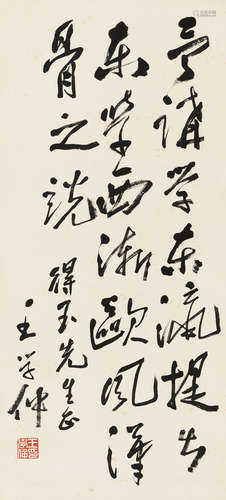 予讲学东瀛提出
东学西渐欧风汉
骨之说
得玉先生正
王学仲